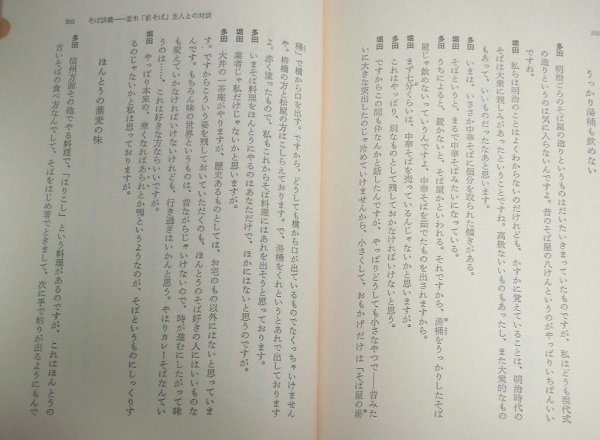 202
うっかり湯桶も飲めない
多田　明治ごろのそば屋の造りというものはだいたいきまっていたものですが、私はどうも現代式
の造りというのは気に入らないんですよ。昔のそば屋の八けんというのがやっぱりいちばんいい
と思うんです。
堀田　私らは明治のことはよくわからないのだけれども、かすかに覚えていることは、明治時代の
そばは大衆に親しみがあったということですね。高級ないいものもあったし、また大衆的なもの
もあって、いいものだったなあと思います。
多田　いまは、いささか中華そばに領分を取られた傾きがある。
堀田　そばというと、まるで中華そばみたいになっている。
多田　うちによると、置かないと、そば屋かといわれる。それですから、湯桶をうっかりしたそば
屋じゃ飲めないっていうんですよ、中華そばを茹でたものを出されますから。
堀田　まず七分ぐらいは、中華そばを売っているんじゃないかと思いますが。
多田　これはやっぱり、別なものとして残しておかなければいけないと思う。
堀田　ですからこの間も仲なんかと話したんですが、やっぱりどうしても小さなやつで――昔みた
いに大きな突出したのじゃ、冷めていけませんから、小さくして、おもかげだけは「そば屋の湯
203　そば談義――並木「藪そば」主人との対談
桶」で横から口を出す。ですから、どうしても横から口が出ているものでなくっちゃいけません
や。柳橋の方と松屋の方はこしらえております。で、湯桶をくれというとあれで出して使うんだ
よ。赤く塗ったもので、私もこれからそば料理にはあれを出そうと思っております。
多田　いまそば料理をほんとうにやるのはあなただけで、ほかにはないと思うのですが。
堀田　業者じゃ私だけじゃないかと思いますが。
多田　大井の一茶庵がやりますが、歴史あるものとしては、お宅のもの以外にはないと思っていま
す。ですからこういう姿を残しておいていただくのも、ほんとうのそば好きの人にはいいものな
んです。もちろん味の世界というものは、昔ながらじゃいけないので、時が進むにしたがって味
も変えていかなければいけないけれども、行き過ぎはいかんと思う。やはりカレーそばなんてい
うのは……、これは好きな方ならいいですが。
堀田　やっぱり本来の、寒くなればあられとか鴨というようなのが、そばというものにしっくりす
るのじゃないかと私は思っておりますが。
ほんとうの蕎麦の味
多田　信州方面その他でやる料理で、「はりこし」という料理があるのですが、これはほんとうに
古いそばの食べ方なんでして、そばをはじめ箸でときまして、次に手で粘りが出るようにもんで